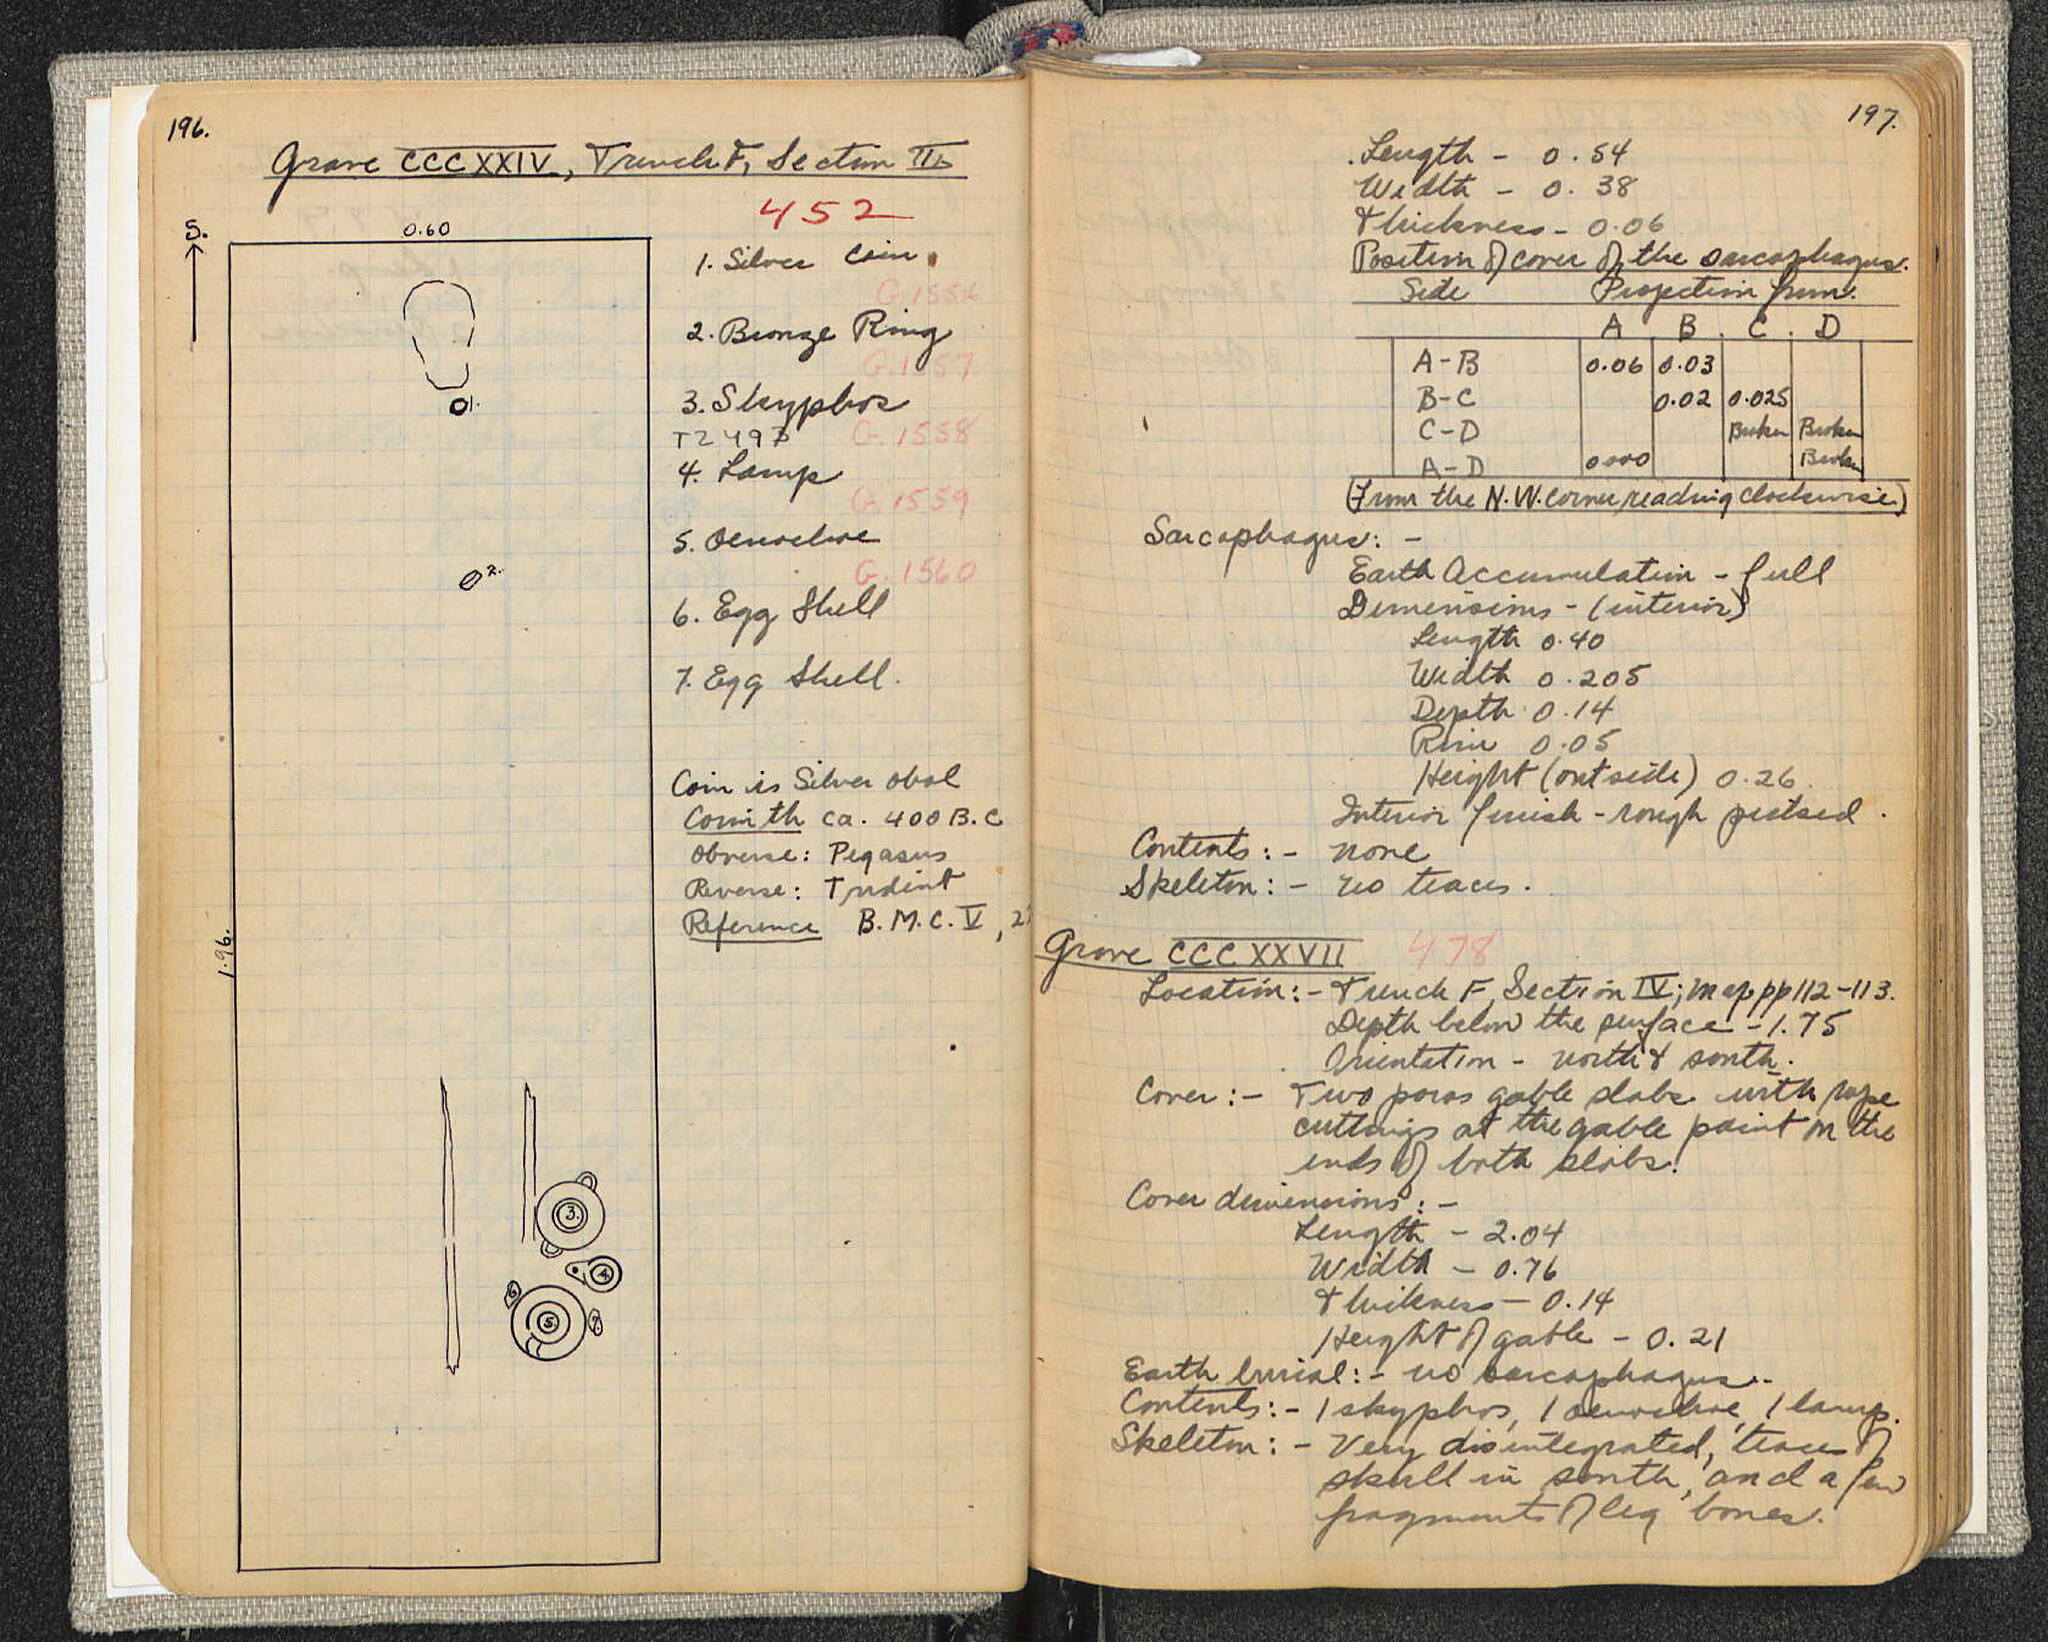 196.
Grave CCCXXIV, Trench F, Section II
452
S.
0.60
1. Silver Coin.
G.1556
2. Bronze Ring
G.1557
3. Skyphos
T2493 G.1558
4. Lamp
G.1559
5. Oenochoe
G.1560
6. Egg Shell
7. Egg Shell.
1.
2.
Coin is Silver obol
Corinth ca. 400 B.C
Obverse: Pegasus
Reverse: Trident
Reference B.M.C. V, 2
1.96.
3.
4.
6.
5.
7.
197.
Length - 0.54
Width - 0.38
Thickness - 0.06
Position of cover of the sarcophagus.
Side Projection from.
A B. C. D
A-B 0.06 0.03
B-C 0.02 0.025
C-D Broken Broken
A-D 0.000 Broken
(From the N.W. corner, reading clockwise)
Sarcophagus: -
Earth Accumulation - full
Dimensions - (interior)
Length 0.40
Width 0.205
Depth 0.14
Rim 0.05
Height (outside) 0.26.
Interior finish - rough picked.
Contents: - none
Skeleton: - no traces.
Grave CCCXXVII 478
Location: - Trench F, Section IV; map pp 112-113.
Depth below the surface - 1.75
Orientation - north & south.
Cover: - Two poros gable slabs with rope
cuttings at the gable point on the
ends of both slabs.
Cover dimensions: -
Length - 2.04
Width - 0.76
Thickness - 0.14
Height of gable - 0.21
Earth burial: - no sarcophagus.
Contents: - 1 skyphos, 1 oenochoe, 1 lamp.
Skeleton: - Very disintegrated, traces of
skull in south, and a few
fragments of leg bones.